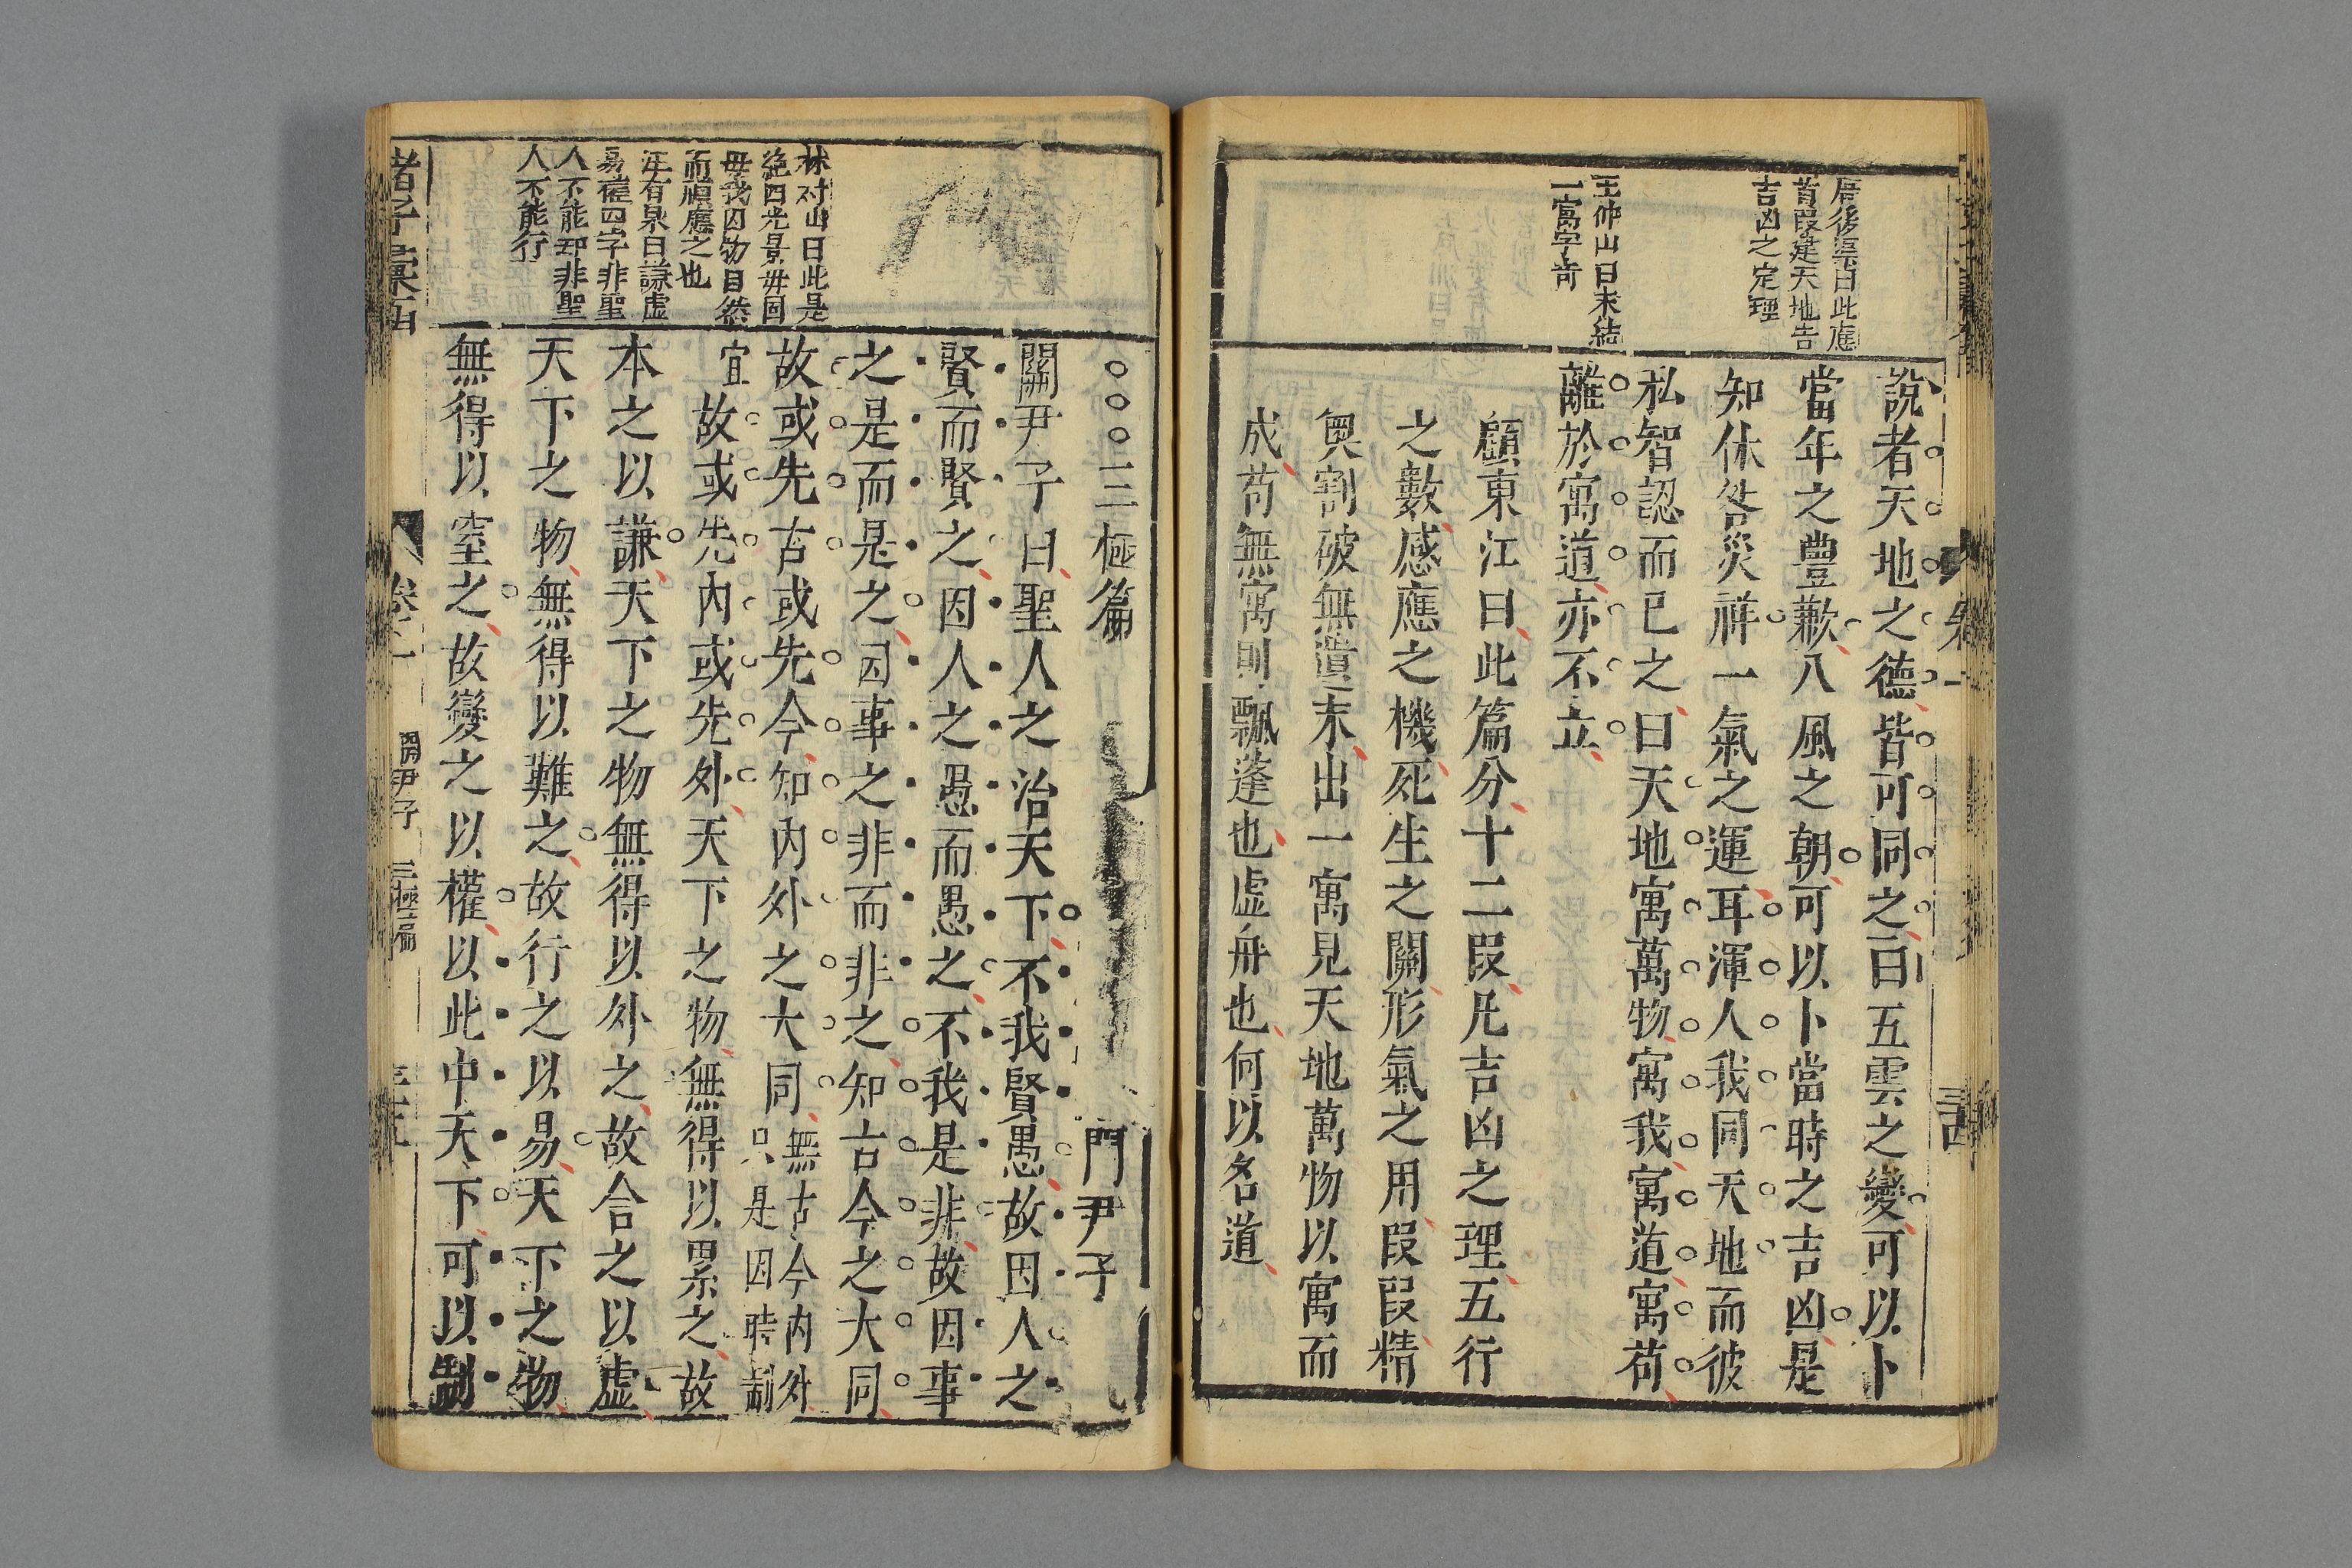 唐後渠曰此應
首段建天地告
吉凶之定理
王仲山曰末結
一寓字奇
說者天地之德皆可同之曰五雲之變可以卜
當年之豊歉八風之朝可以卜當時之吉凶是
知休咎災祥一氣之運耳渾人我同天地而彼
私智認而已之曰天地寓萬物寓我寓道寓苟
離於寓道亦不立
顧東江曰此篇分十二段凡吉凶之理五行
之數感應之機死生之關形氣之用段段精
奧割破無遺末出一寓見天地萬物以寓而
成苟無寓則飄蓬也虛舟也何以名道
林对山曰此是
絶四光景毋固
毋我因物自然
而順應之也
汪有泉曰謙虛
易權四字非聖
人不能却非聖
人不能行
三極篇 門尹子
關尹子曰聖人之治天下不我賢愚故因人之
賢而賢之因人之愚而愚之不我是非故因事
之是而是之因事之非而非之知古今之大同
故或先古或先今知內外之大同無古今內外
只是因時制
宜故或先內或先外天下之物無得以累之故
本之以謙天下之物無得以外之故合之以虛
天下之物無得以難之故行之以易天下之物
無得以窒之故變之以權以此中天下可以制
諸子彙函
卷一
關尹子 三極篇
三十五